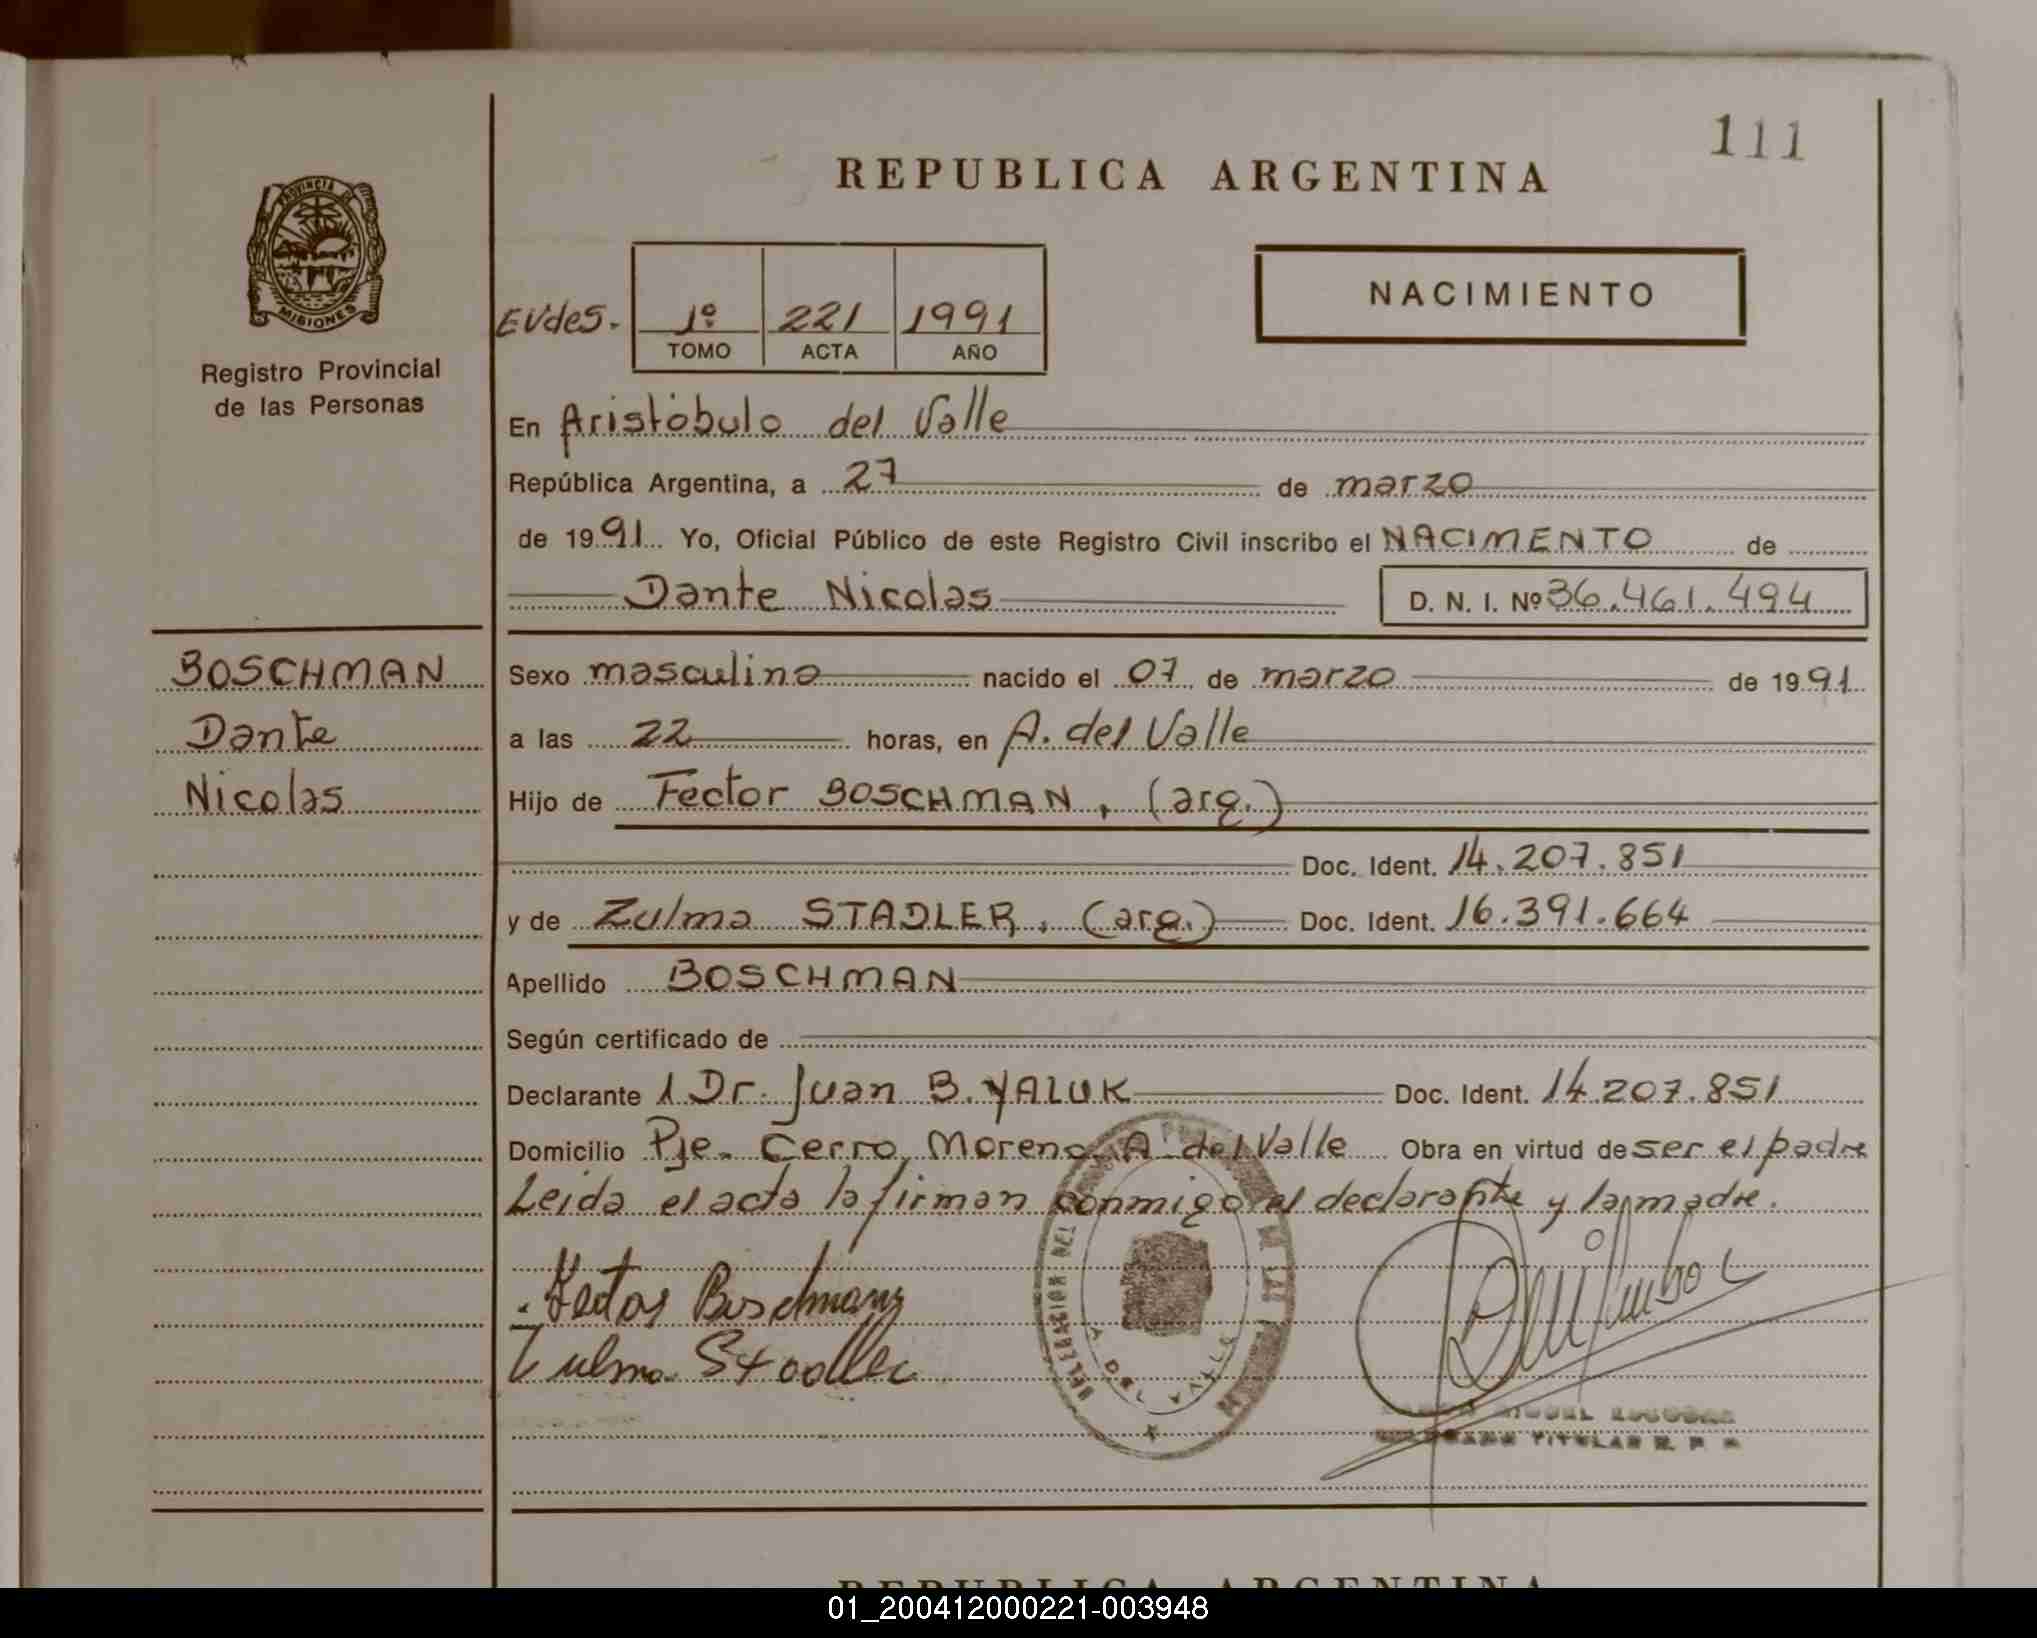 111
REPUBLICA ARGENTINA
PROVINCIA DE
MISIONES
Registro Provincial
de las Personas
EVdes. 1º 221 1991
TOMO ACTA AÑO
NACIMIENTO
En Aristóbulo del Valle
República Argentina, a 27 de marzo
de 1991 Yo, Oficial Público de este Registro Civil inscribo el NACIMENTO de
Dante Nicolas D. N. I. Nº 36.461.494
BOSCHMAN
Dante
Nicolas
Sexo masculino nacido el 07 de marzo de 1991
a las 22 horas, en A. del Valle
Hijo de Fector BOSCHMAN, (arg.)
Doc. Ident. 14.207.851
y de Zulma STADLER, (arg.) Doc. Ident. 16.391.664
Apellido BOSCHMAN
Según certificado de
Declarante 1 Dr. Juan B. YALUK Doc. Ident. 14.207.851
Domicilio Pje. Cerro Moreno A. del Valle Obra en virtud de ser el padre
Leida el acta la firman conmigo el declarante y la madre.
DELEGACION DEL
A. DEL VALLE
Zulma
MIGUEL ESCOBAR
TITULAR R. P. P.
REPUBLICA ARGENTINA
01_200412000221-003948